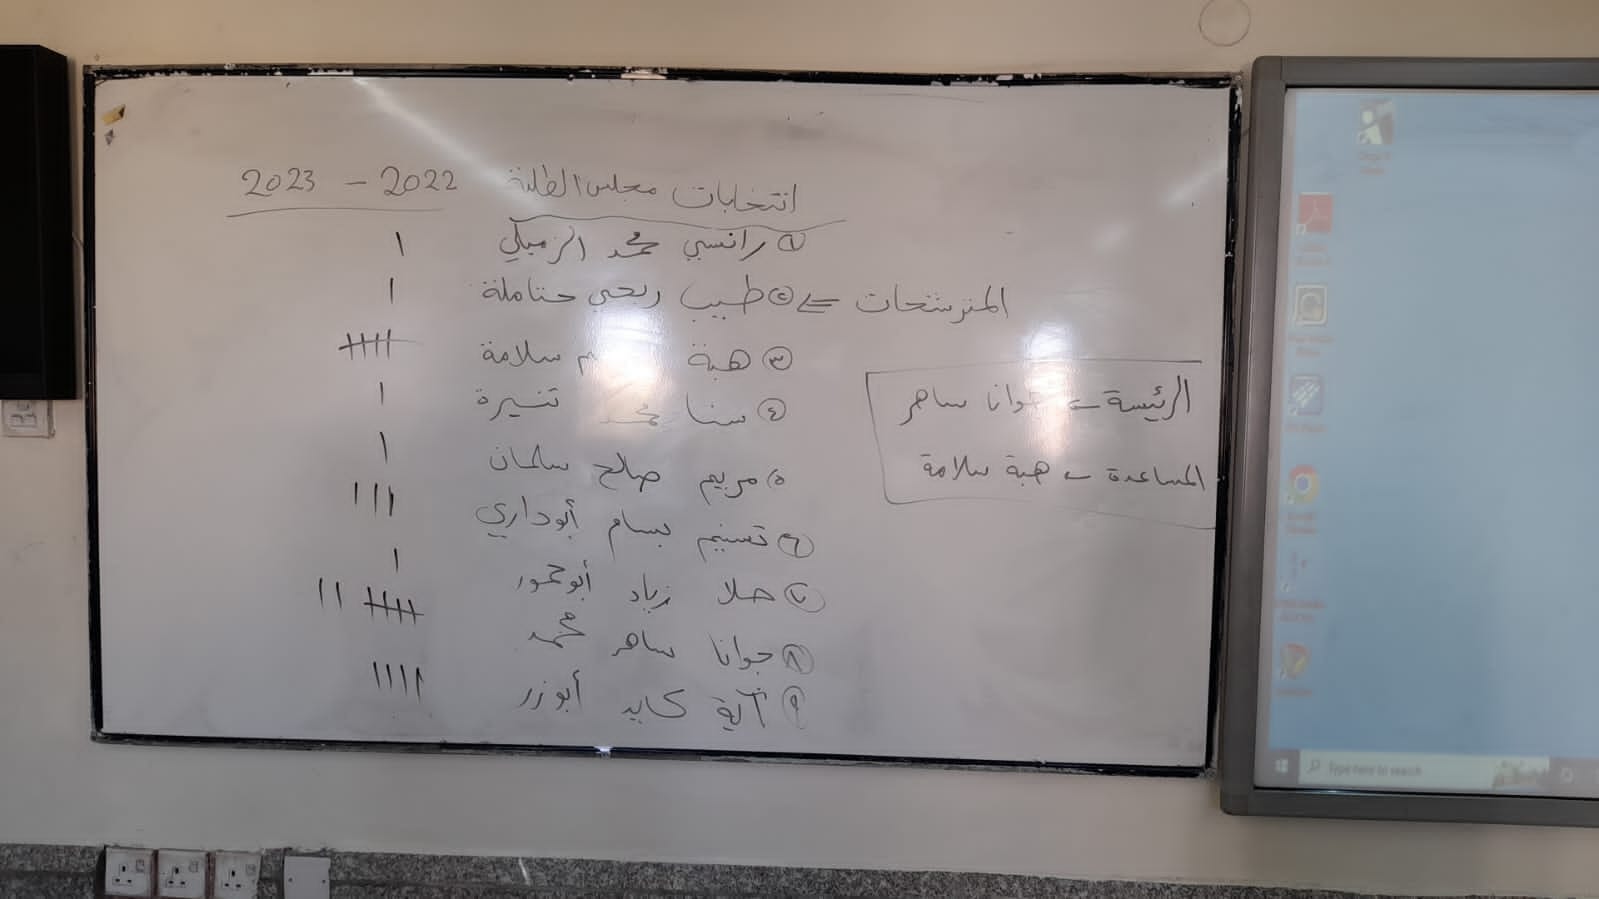 انتخابات مجلس الطلبة 2022 - 2023
١ رانسي محمد الزميلي
المترشحات ⇐ ٢ طيب ربحي حتاملة
٣ هبة سلامة
٤ سنا محمد تنيرة
٥ مريم صالح سلمان
٦ تسنيم بسام أبوداري
٧ حلا زياد أبوحمور
٨ جوانا ساهر محمد
٩ آية كايد أبوزر
الرئيسة ← جوانا ساهر
المساعدة ← هبة سلامة
Type here to search